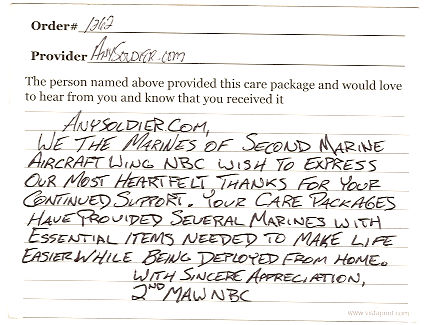 Order# 1362
Provider AnySoldier.com
The person named above provided this care package and would love
to hear from you and know that you received it
AnySoldier.Com,
We the Marines of Second Marine
Aircraft Wing NBC wish to express
our most heartfelt, thanks for your
continued support. Your care packages
have provided several Marines with
essential items needed to make life
easier while being deployed from home.
With sincere appreciation,
2ND MAW NBC
www.vistaprint.com